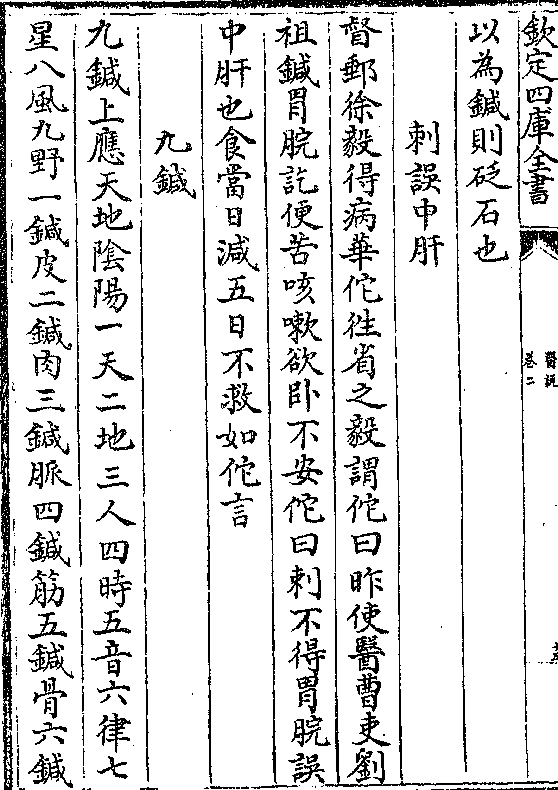 欽定四庫全書
醫說
卷二
以為鍼則砭石也
刺誤中肝
督郵徐毅得病華佗往省之毅謂佗曰昨使醫曹吏劉
祖鍼胃脘訖便苦咳嗽欲卧不安佗曰刺不得胃脘誤
中肝也食當日減五日不救如佗言
九鍼
九鍼上應天地陰陽一天二地三人四時五音六律七
星八風九野一鍼皮二鍼肉三鍼脈四鍼筋五鍼骨六鍼